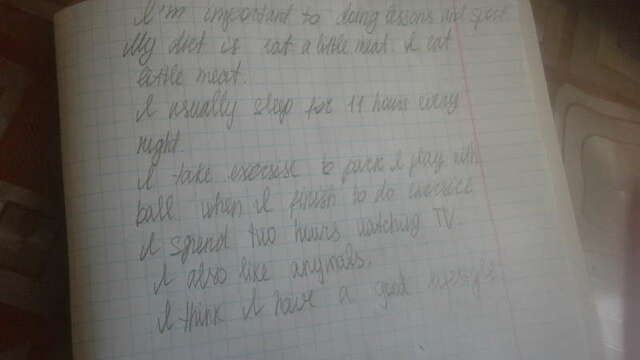 I'm important to doing lessons and sport
My diet is eat a little meat. I eat
little meat.
I usually sleep for 11 hours every
night.
I take exercise to park I play with
ball when I finish to do exercise
I spend two hours watching TV.
I also like anymals.
I think I have a good